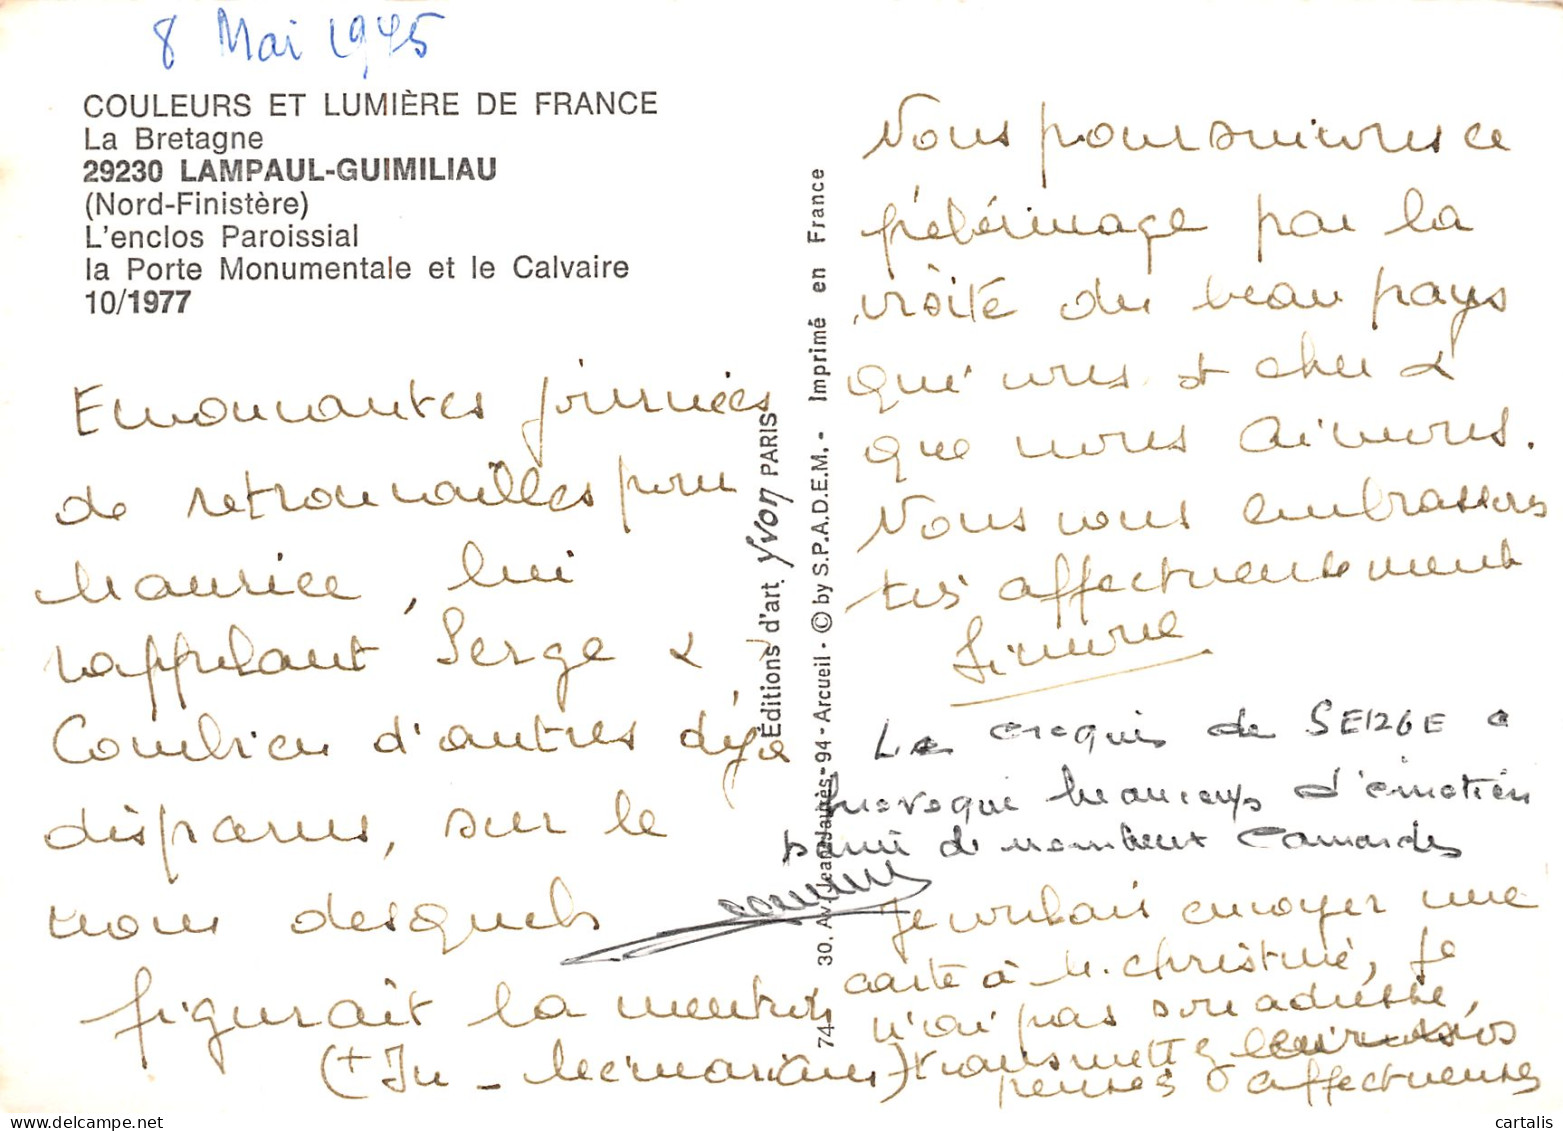 8 Mai 1945
COULEURS ET LUMIÈRE DE FRANCE
La Bretagne
29230 LAMPAUL-GUIMILIAU
(Nord-Finistère)
L'enclos Paroissial
la Porte Monumentale et le Calvaire
10/1977
Emouvantes journées
de retrouvailles pour
Maurice, lui
rappelant Serge &
Combien d'autres déjà
disparus, sur le
nom desquels
figurait la mention
(+ In - Memoriam)
Éditions d'art Yvon PARIS
74 - 30, Av. Jean-Jaurès - 94 - Arcueil - © by S.P.A.D.E.M. - Imprimé en France
Nous poursuivons ce
pélérinage par la
visite du beau pays
qui vous est cher &
que nous aimons.
Nous vous embrassons
très affectueusement
Simone
Le croquis de SERGE a
provoqué beaucoup d'émotion
parmi de nombreux Camarades
Je voulais envoyer une
carte à M. Christine, je
n'ai pas son adresse,
transmettez leur nos
pensées affectueuses
cartalis